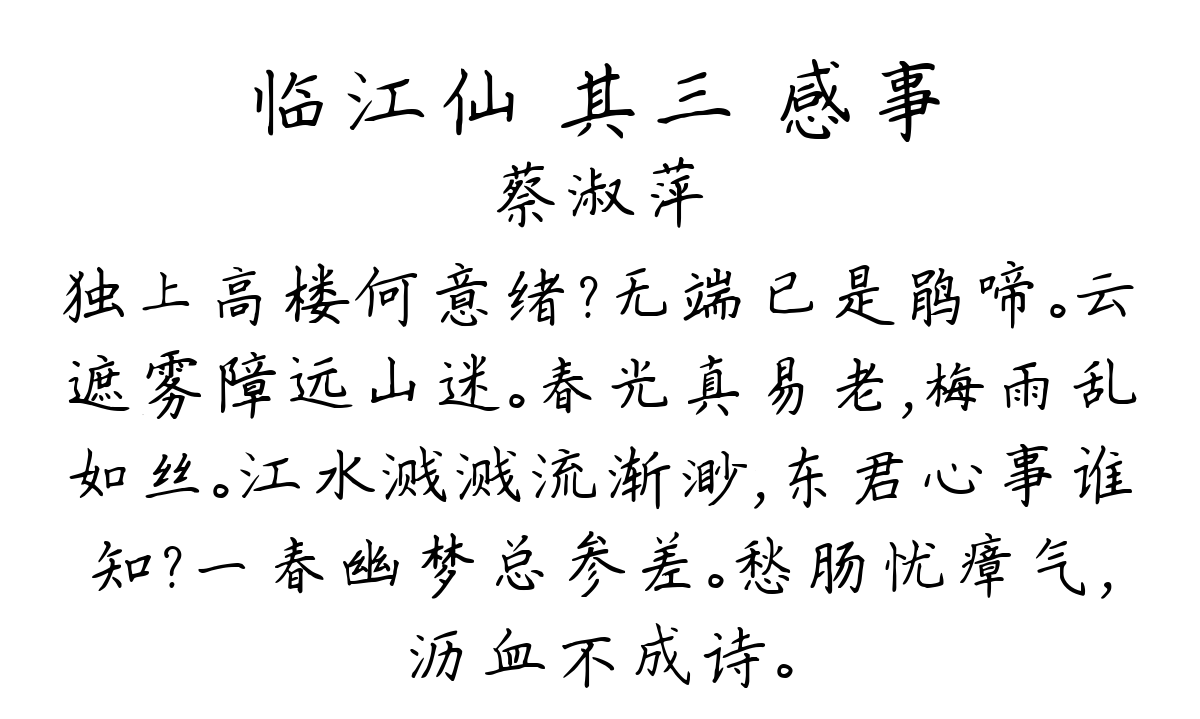 临江仙 其三 感事
蔡淑萍
独上高楼何意绪?无端已是鹃啼。云
遮雾障远山迷。春光真易老,梅雨乱
如丝。江水溅溅流渐渺,东君心事谁
知?一春幽梦总参差。愁肠忧瘴气,
沥血不成诗。